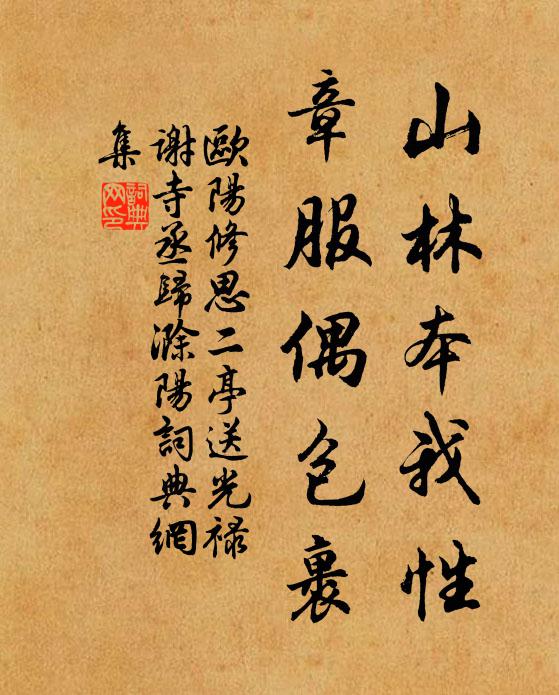 山林本我性
章服偶包裹
歐陽修思二亭送光祿
謝寺丞歸滁陽詞典網
集
詞典
网印